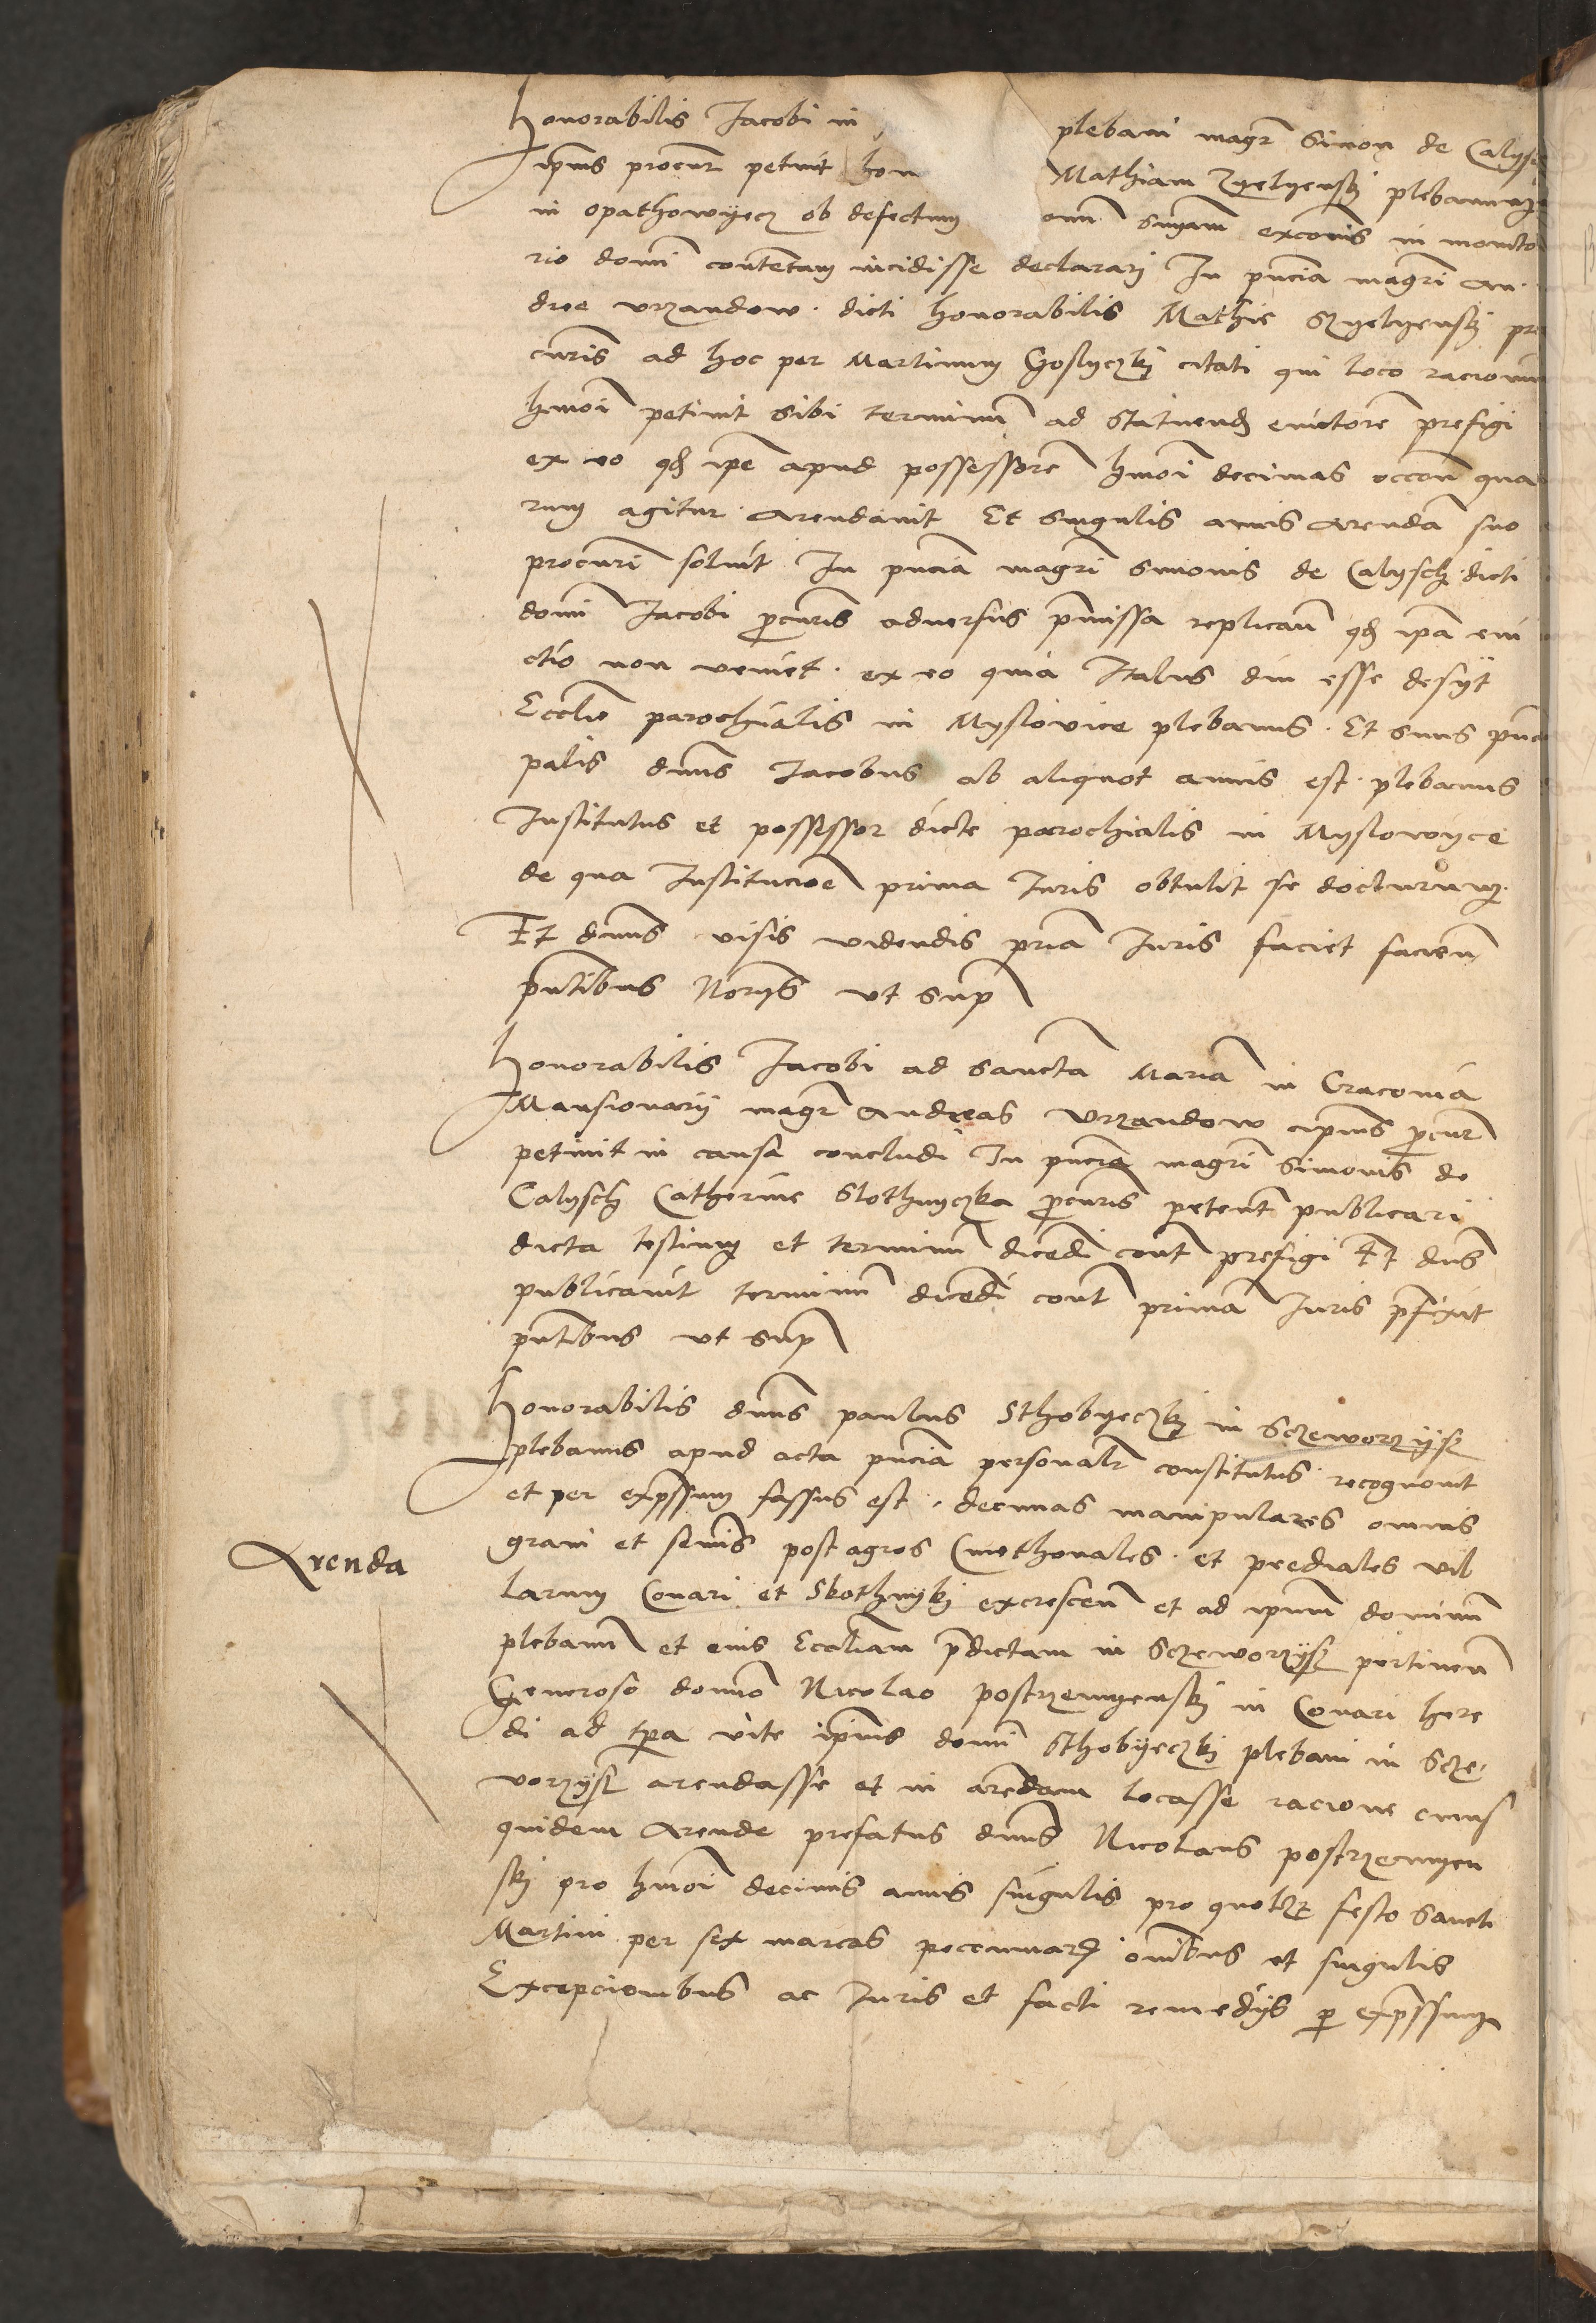 honorabilis Jacobi in plebani magr Simon de Calysch
ipius procur petivit hon Mathiam Zyelyenskj plebanum
in opathowyecz ob defectum onum snyam exconis in monito
rio domi contentam incidisse declararj In pncia magri An
dree vrzandow dicti honorabilis Mathie Szyelyenskj pro
curis ad hoc per Martinum Goslyczkj citati qui loco racionum
hmoi petivit sibi terminum ad statuend evictore prefigi
ex eo qd ipe apud possessore hmoi decimas occon qua
rum agitur arendavit Et singulis annis arendam suo
procuri solvit In pncia magri Simonis de Calysch dicti
domi Jacobi pcuris adversus pmissa replican qd ipa evi
ctio non veniet ex eo quia Italus diu esse desyt
Ecclie parochialis in Myslovice plebanus Et suus princi
palis dnus Jacobus ab aliquot annis est plebanus
Institutus et possessor dicte parochialis in Myslowyce
de qua Institucione prima Juris obtulit se docturum
Et dnus visis videndis pria Juris faciet facien
pntibus Norijs vt sup
honorabilis Jacobi ad Sancta Maria in Cracovia
Mansionarij magr Andreas Vrzandow ipius pcur
petivit in causa concludi In pncia magri Simonis de
Calysch Catherine Slothnyczka pcuris petent publicari
dicta testium et terminu dicedi cont prefigi Et dns
publicavit terminu dicedi cont prima Juris pfixit
pntibus vt sup
honorabilis dnus paulus Sthobyeczkj in Sczeworzysz
plebanus apud acta pncia personalr constitutus recognovit
et per expssum fassus est decimas manipulares omnis
grani et semis post agros Cmethonales et prediales vil
larum Conari et Skothnykj excrescen et ad ipum dominu
plebanu et eius Eccliam pdictam in Sczeworzysz pertinen
Generoso domino Nicolao postrzemyenskj in Conari here
di ad tpa vite ipius domi Sthobyeczkj plebani in Scze
vorzysz arendasse et in arendam locasse racione cuius
quidem Arende prefatus dnus Nicolaus postrzemyen
skj pro hmoi decimis annis singulis pro quolibet festo Sancti
Martini per sex marcas pecuniard omibus et singulis
Excepcionibus ac Juris et facti remedijs p expssum
Arenda